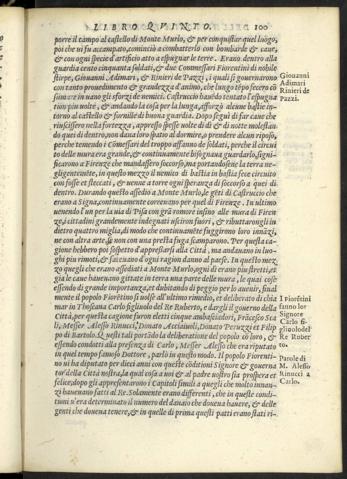 LIBRO QVINTO. 100
porre il campo al castello di Monte Murlo, & per cinquistar quel luogo,
poi che vi fu accampato, cominciò a combatterlo con bombarde & caue,
& con ogni specie d'artificio atto a espugnar le terre. Erano dentro alla
guardia cento cinquanta soldati, & due Commessari Fiorentini di nobile
stirpe, Giouanni Adimari, & Rinieri de Pazzi, i quali si gouernarono
con tanto prouedimento & grandezza d'animo, che lungo tẽpo fecero cõ
tion piu uolte, & andando la cosa per la lunga, afforzò alcune bastie in-
torno al castello & fornille di buona guardia. Dopo seguì di far caue che
riuscissero nella fortezza, appresso spesse uolte di dì & di notte molestan
do quei di dentro, non daua loro spatio al dormire, o prendere alcun riposo,
perche temendo i Cõmessari del troppo affanno de soldati, perche il circui
to delle mura era grande, & continuamente bisognaua guardarlo, signi-
ficarono a Firenze che mandassero soccorso, ma portandosi ne la terra ne-
gligentemẽte, in questo mezzo il nemico di bastia in bastia fece circuito
con fosse et steccati, & uenne a torre ogni speranza di soccorso a quei di
dentro. Durando questo assedio a Monte Murlo, le gẽti di Castruccio che
erano a Signa, continuamente correuano per quel di Firenze. In ultimo
uenendo l'un per la uia di Pisa con grã romore insino alle mura di Firen
ze, i cittadini grandemente indegnati usciron fuori, & ributtarongli in
dietro quattro miglia, di modo che continuamẽte fuggirono loro innãzi,
ne con altra arte, se non con una presta fuga scamparono. Per questa ca-
gione hebbero poi sospetto d'appressarsi alla Città, ma andauano in luo-
ghi piu rimoti, & faceuano d'ogni ragion danno al paese. In questo mez
zo quegli che erano assediati a Monte Murlo, ogni dì erano piu stretti, et
gia le caue haueuano gittate in terra una parte delle mura, le quai cose
essendo di grande importanza, et dubitando di peggio per lo auenir, final
mente il popolo Fiorẽtino si uolse all'ultimo rimedio, et deliberato di chia
mar in Thoscana Carlo figliuolo del Re Ruberto, e dargli il gouerno della
Città, per questa cagione furon eletti cinque ambasciadori, Frãcesco Sca
li, Messer Alesso Rinucci, Donato Acciaiuoli, Donato Peruzzi et Filip
po di Bartolo. Questi tali portãdo la deliberatione del popolo cõ loro, &
essendo condotti alla presenza di Carlo, Messer Alesso che era riputato
in quel tempo famoso Dottore, parlò in questo modo. Il popolo Fiorenti-
no ui ha diputato per dieci anni con queste cõditioni Signore & gouerna
tor della Città nostra, la qual cosa a uoi & al padre nostro sia prospera et
felice, dopo gli appresentarono i Capitoli simili a quegli che molto innan-
zi haueuano fatti al Re. Solamente erano differenti, che in queste condi-
tioni u'era determinato il numero del danaio che doueua hauere, & delle
genti che doueua tenere, & in quelle di prima questi patti erano stati ri-
Giouanni
Adimari
Rinieri de
Pazzi.
I Fiorẽtini
fanno lor
Signore
Carlo fi-
gliuolo del
Re Rober
to.
Parole di
M. Alesso
Rinucci a
Carlo.